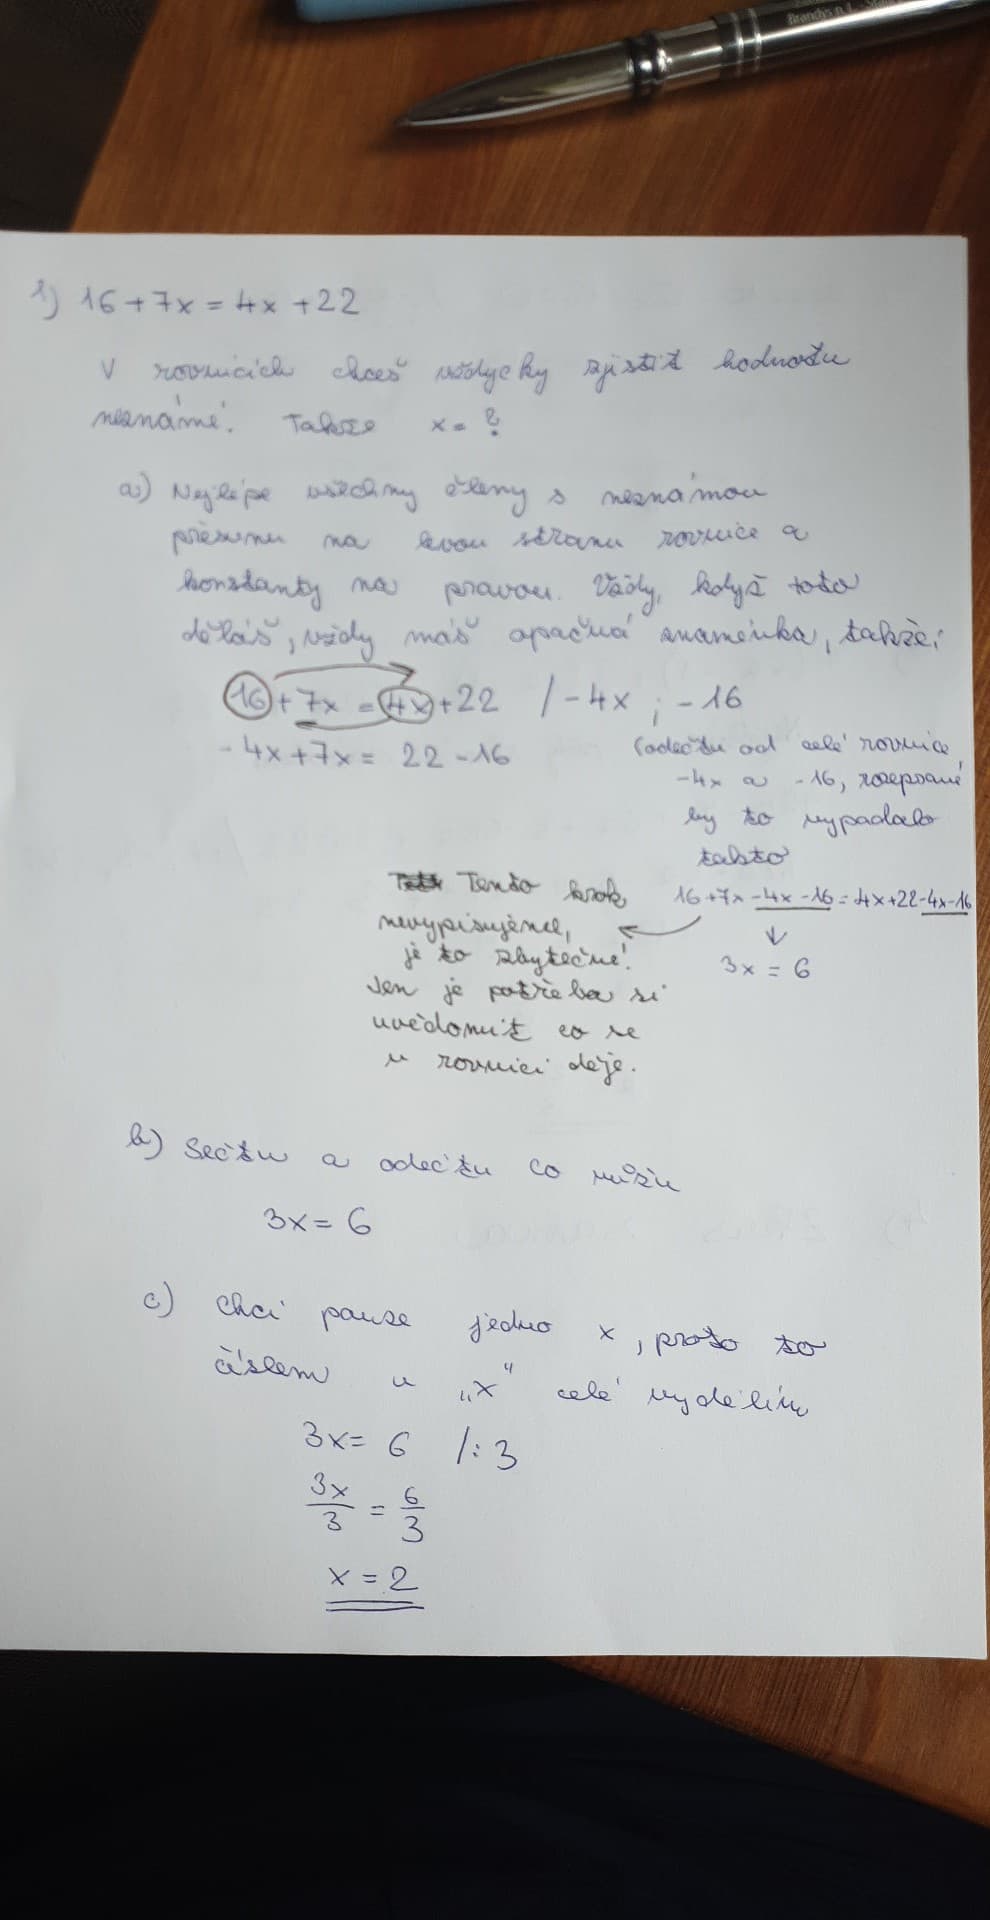 Brandýs n. L.
1) 16 + 7x = 4x + 22
V rovnicích chceš vždycky zjistit hodnotu
neznámé. Takže x = ?
a) Nejlépe všechny členy s neznámou
přesunu na levou stranu rovnice a
konstanty na pravou. Vždy, když toto
děláš, vždy máš opačná znaménka, takže:
16 + 7x = 4x + 22 / - 4x ; - 16
- 4x + 7x = 22 - 16
(odečtu od celé rovnice
-4x a -16, rozepsané
by to vypadalo
takto
16 + 7x - 4x - 16 = 4x + 22 - 4x - 16
3x = 6
Tento krok
nevypisujeme,
je to zbytečné!
Jen je potřeba si
uvědomit co se
v rovnici děje.
b) Sečtu a odečtu co můžu
3x = 6
c) Chci pouze jedno x, proto to
číslem u „x" celé vydělím
3x = 6 /: 3
3x/3 = 6/3
x = 2